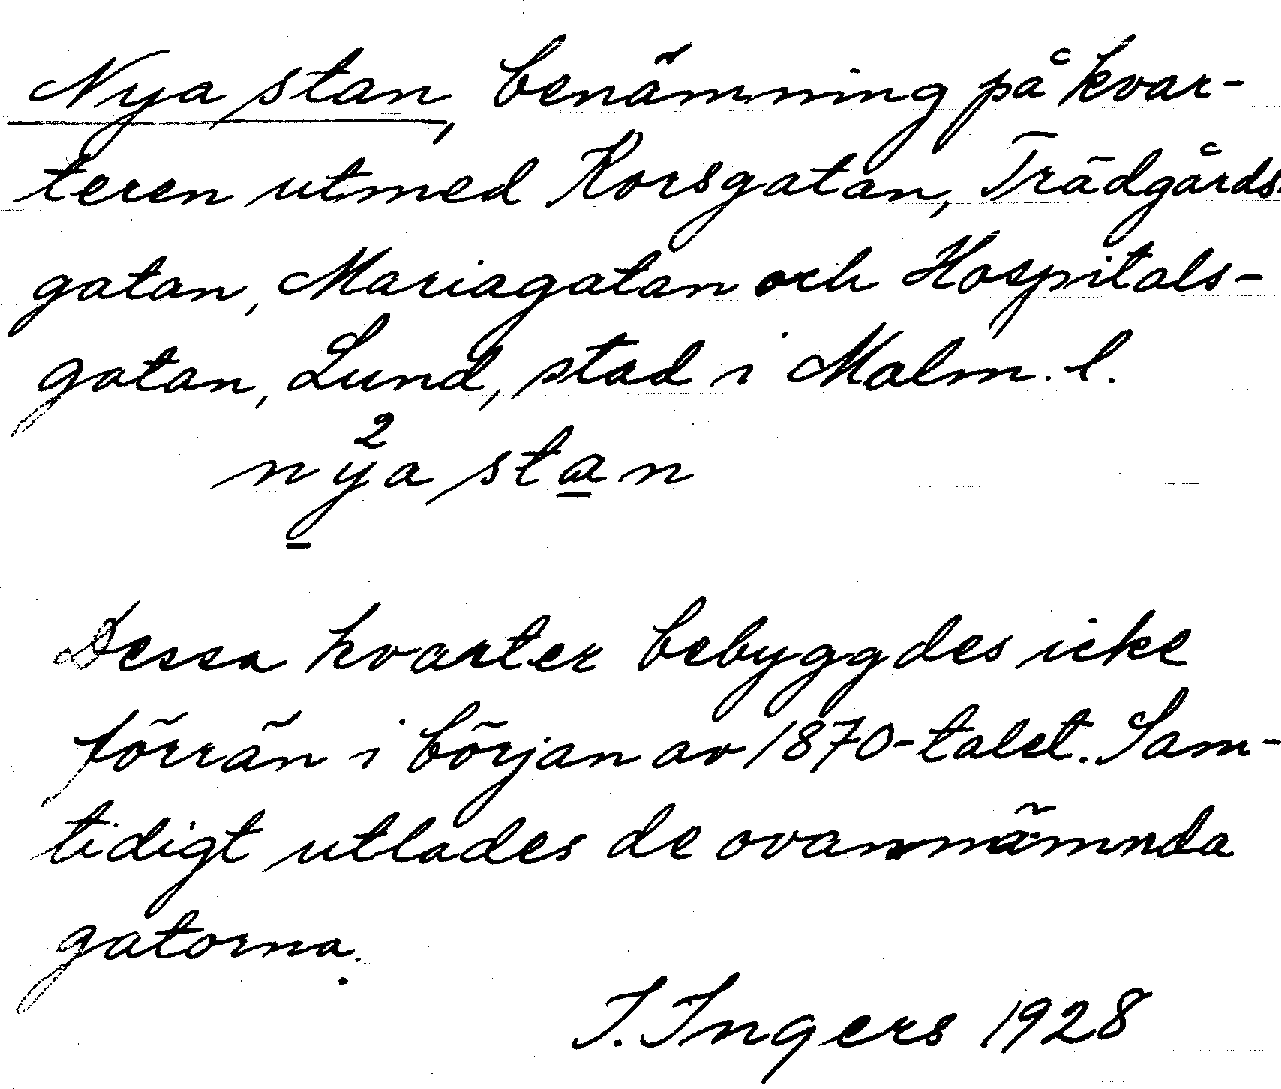 Nya stan, benämning på kvar-
teren utmed Korsgatan, Trädgårds-
gatan, Mariagatan och Hospitals-
gatan, Lund, stad i Malm. l.
2
nya stan
Dessa kvarter bebyggdes icke
förrän i början av 1870-talet. Sam-
tidigt utlades de ovannämnda
gatorna.
I. Ingers 1928